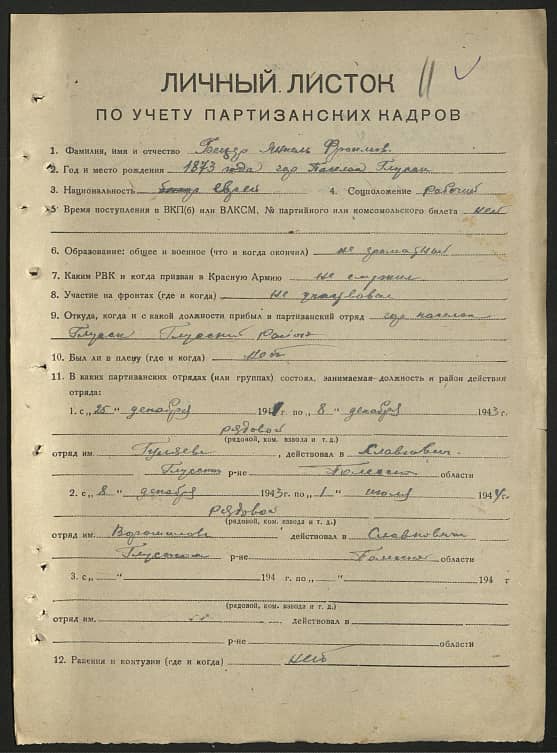 ЛИЧНЫЙ ЛИСТОК 11
ПО УЧЕТУ ПАРТИЗАНСКИХ КАДРОВ
1. Фамилия, имя и отчество
2. Год и место рождения 1873 года гор
3. Национальность еврей 4. Соцположение рабочий
5 Время поступления в ВКП(б) или ВЛКСМ, № партийного или комсомольского билета нет
6. Образование: общее и военное (что и когда окончил) не грамотный
7. Каким РВК и когда призван в Красную Армию не служил
8. Участие на фронтах (где и когда) не участвовал
9. Откуда, когда и с какой должности прибыл в партизанский отряд
Глусский район
10. Был ли в плену (где и когда)
11. В каких партизанских отрядах (или группах) состоял, занимаемая должность и район действия
отряда:
1. с „25 “ декабря 194 г. по „ 8 “ декабря 1943 г.
рядовой
(рядовой, ком. взвода и т. д.)
отряд им. , действовал в
р-не области
2. с „8 “ декабря 1943 г. по „ 1 “ июля 1944 г.
рядовой
(рядовой, ком. взвода и т. д.)
отряд им. Ворошилова действовал в
р-не области
3. с „ “ 194 г. по „ “ 194 г
(рядовой, ком. взвода и т. д.)
отряд им. , действовал в
р-не области
12. Ранения и контузии (где и когда) нет